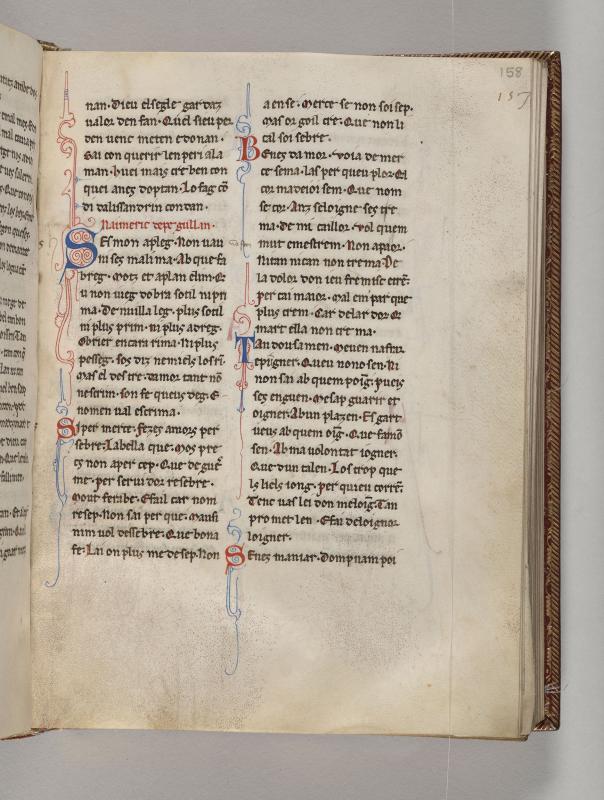 158
157
nan. Dieu el segle gardaz
ualor den fan. Quel sieu per
den uenc meten e donan.
Sai con querir len peri ala
man. huei mais cre ben con
quei aneç doptan. Lo fag cō
di dalissandrin contan.
Naimeric
SEs mon apleg. Non uau
ni seç mal ima. Ab que fa
breg. Motz et aplan e lim. Q
u non ueg dobra sotil ni pri
ma. De nuilla leg. plus sotil
ni plus prim. ni plus adreg.
Obrier en cara rima. Ni plus
pesseg. sos diz
mas el destre. damor tant nō
nescrim. son fe queus deg. E
no men ual escrima.
Si per merce. fezes amors per
sebre. La bella que. Mos pre
cs non apercep. Que de gue
me. per seruidor resebre.
Mout feribe. E sail car nom
resep. Non sai per que. maisi
nim uol dessebre. Que bona
fe. Lai on plus me desep. Non
a en se. Merce se non soi sep.
Mas orgoil cre. Que non li
cil soi sebre.
Beneç damor. uoia de mer
ce sema. Las per queu plor. El
cor ma de ioi sem. Que nom
secor. Anz seloigne ses cre
ma. de mi cuillor. uol quem
mut em estrem. Non a paor.
Ni tan ni can non trema. De
la dolor don ieu fremisc
per cai maior. mal em par que
plus crem. Car del ardor. Q
mart ella non crema.
Tan dousamen. Meuen nafrar
e poigner. Queu no no sen. Ni
non sai ab quem poig. pueis
ses enguen. Me sap guarir et
oigner. Ab un plazen. Esgart
ueus ab quem oig. Que famō
sen. Ab ma uolontat iogner.
Que dun talen. Lo
ls liels iong. per quieu corrē.
Tenc uas lei don meloig. Tan
promet len. E fai de loignor
loigner.
Seneç maniar. Dompnam poi